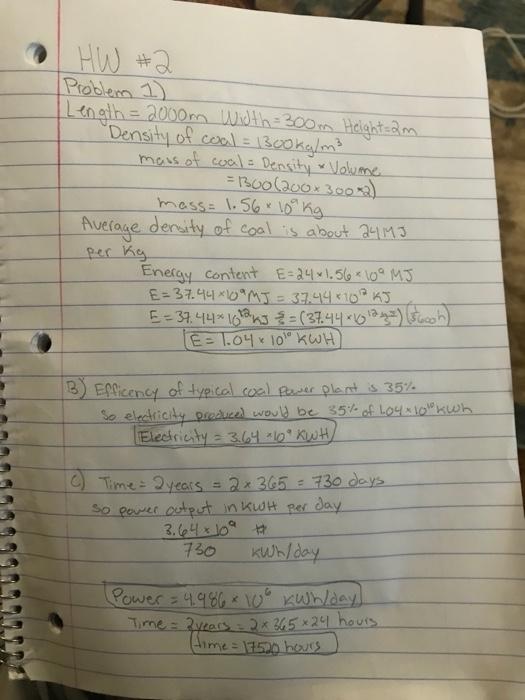 HW #2
Problem 1)
Length = 2000m Width = 300m Height=2m
Density of coal = 1300kg/m³
mass of coal = Density * Volume
= 1300(200 x 300 x 2)
mass = 1.56 x 10⁹ kg
Average density of coal is about 24MJ
per Kg
Energy content E = 24 x 1.56 x 10⁹ MJ
E = 37.44 x 10⁹ MJ = 37.44 x 10¹² KJ
E = 37.44 x 10¹² KJ = (37.44 x 10¹²) (1/3600h)
E = 1.04 x 10¹⁰ KWH
B) Efficency of typical coal power plant is 35%
So electricity produced would be 35% of 1.04 x 10¹⁰ KWh
Electricity = 3.64 x 10⁹ KWH
C) Time = 2 years = 2 x 365 = 730 days
So power output in KWH per day
3.64 x 10⁹
730 KWh/day
Power = 4.986 x 10⁶ KWh/day
Time = 2 years = 2 x 365 x 24 hours
time = 17520 hours